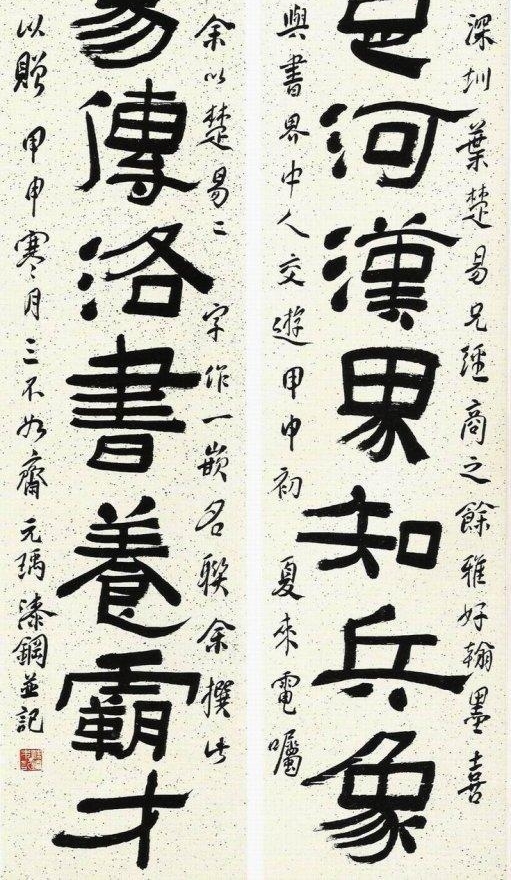 深圳葉楚易兄經商之餘雅好翰墨喜
楚河漢界知兵象
與書界中人交遊甲申初夏來電囑
余以楚易二字作一嵌名聯余撰此
易傳洛書養霸才
以贈甲申寒月三不如齋元瑪漆鋼並記